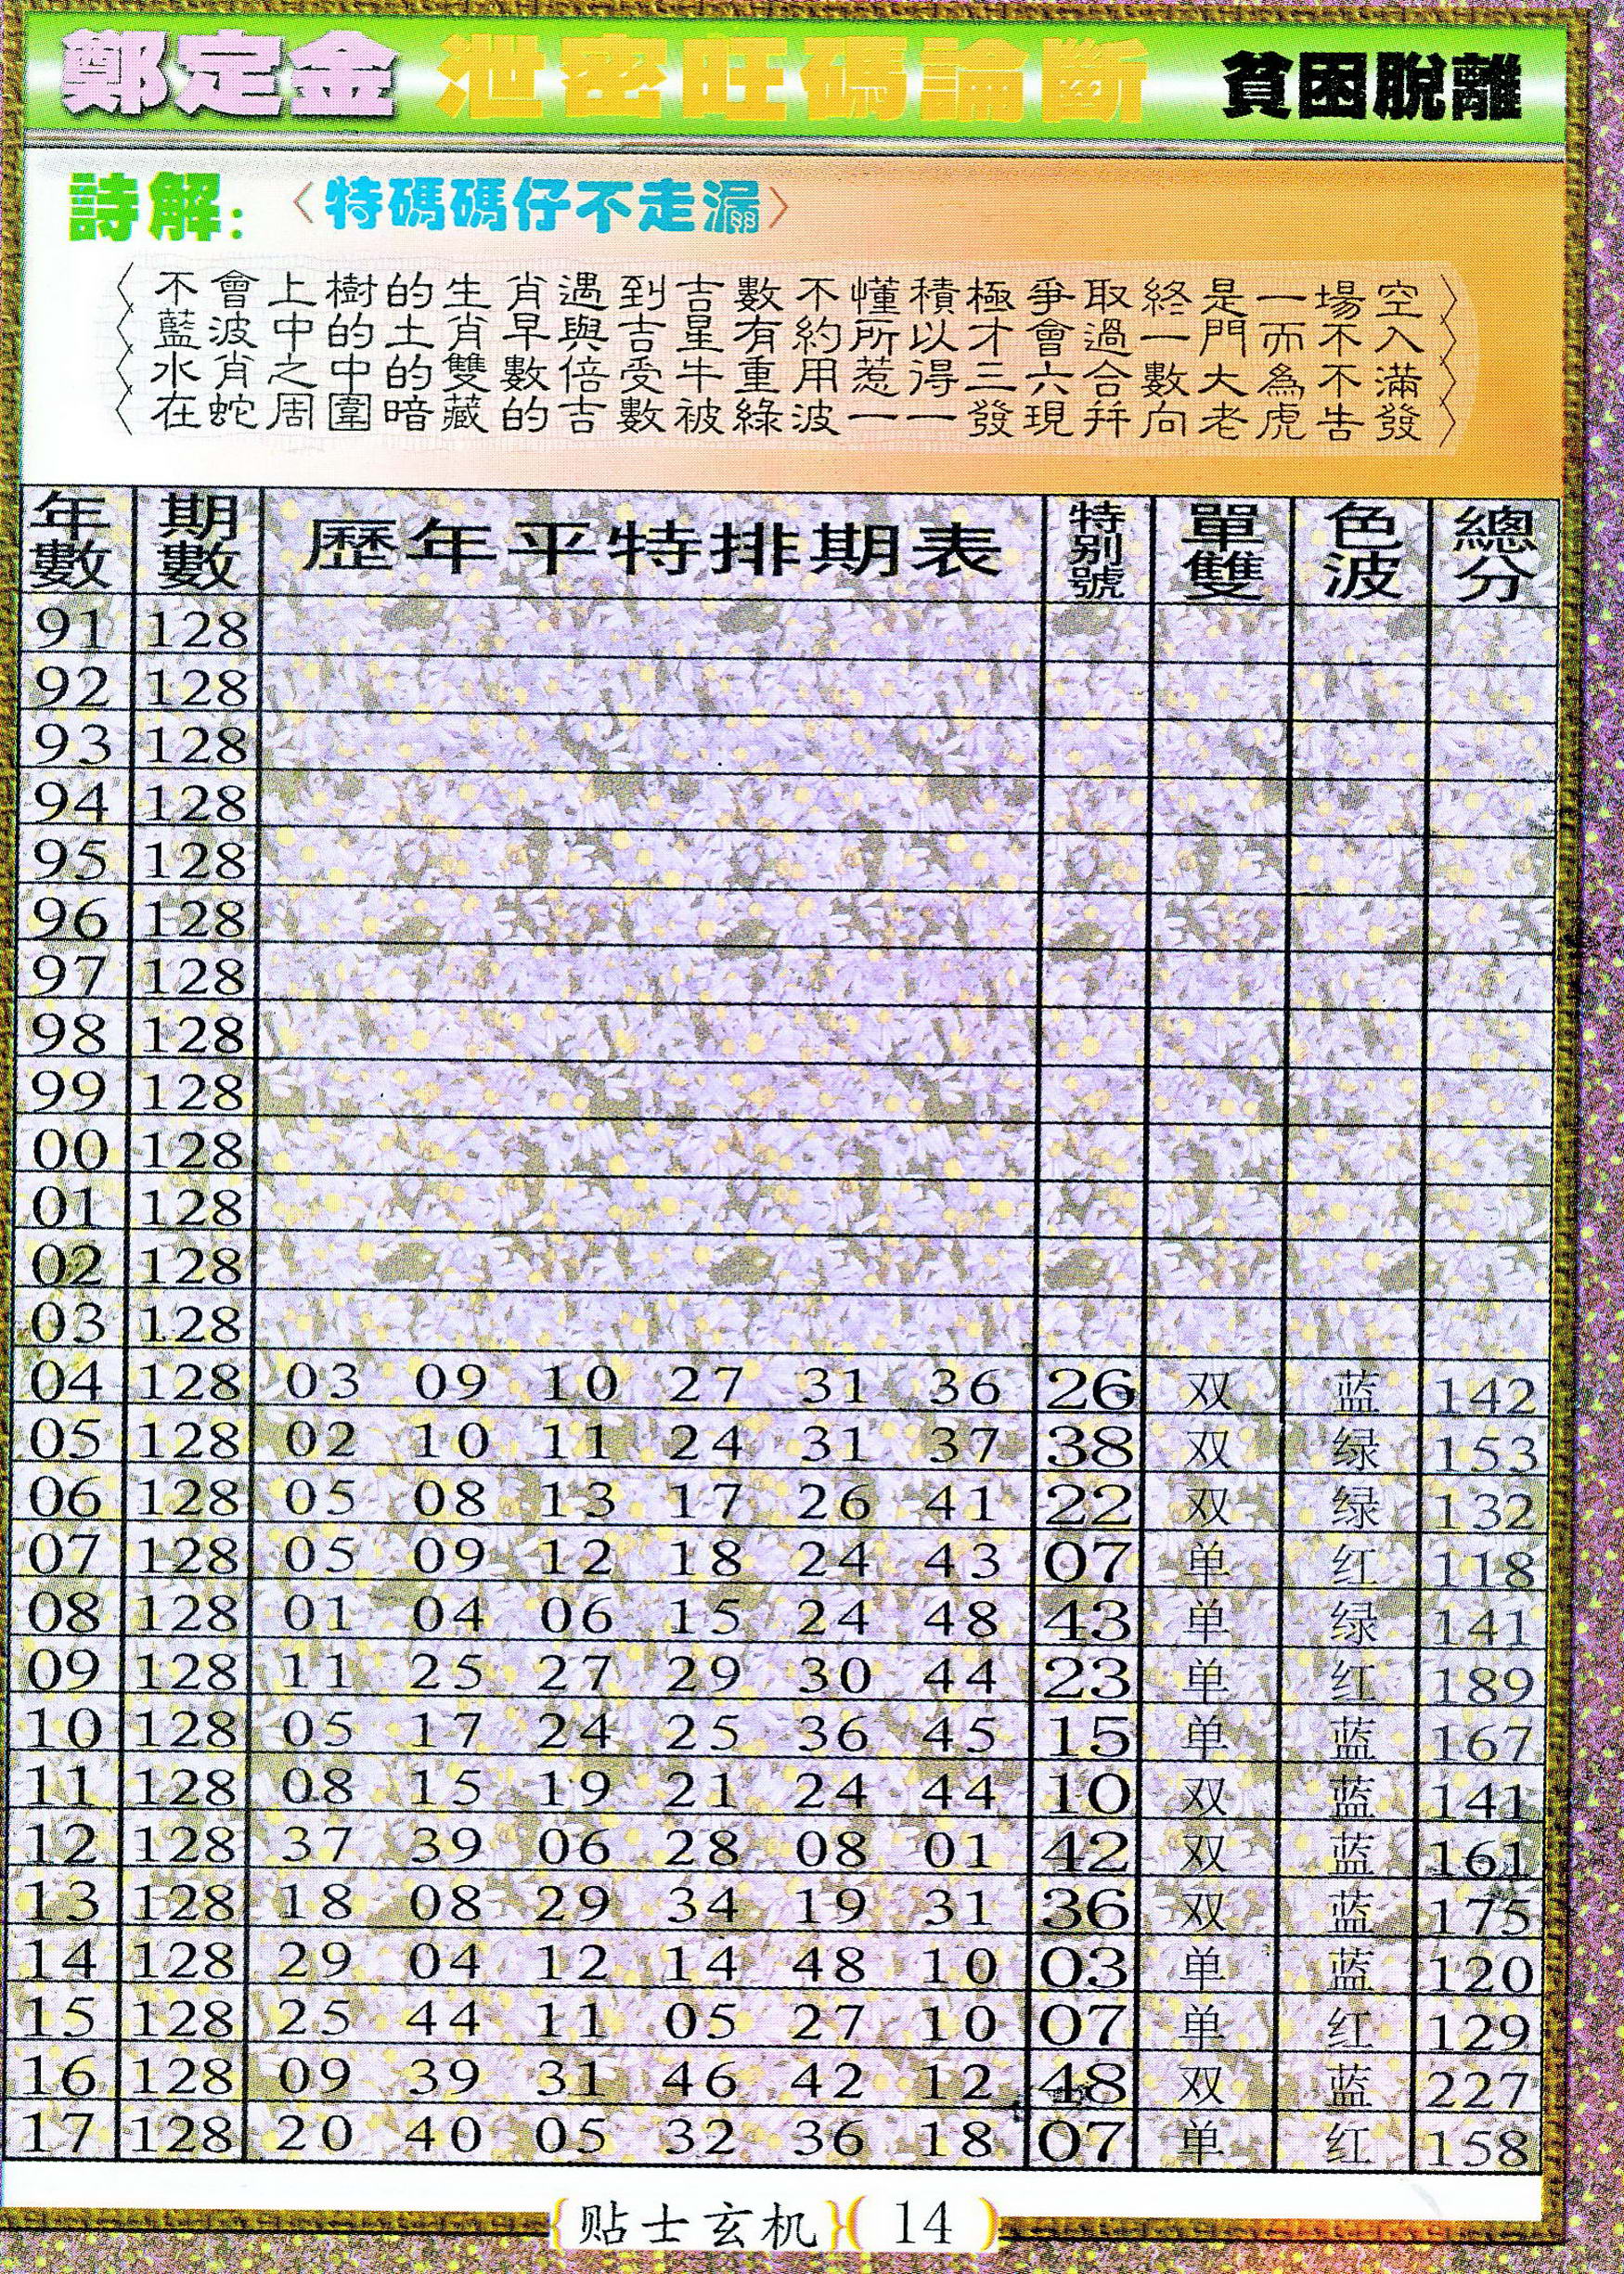 鄭定金 泄密旺碼論斷 貧困脫離
詩解: 〈特碼碼仔不走漏〉
〈不會上樹的生肖遇到吉數不懂積極爭取終是一場空〉
〈藍波中的土肖早與吉星有約所以才會過一門而不入〉
〈水肖之中的雙數倍受牛重用惹得三六合數大為不滿〉
〈在蛇周圍暗藏的吉數被綠波一一發現并向老虎告發〉
年數 期數 歷年平特排期表 特别號 單雙 色波 總分
91 128
92 128
93 128
94 128
95 128
96 128
97 128
98 128
99 128
00 128
01 128
02 128
03 128
04 128 03 09 10 27 31 36 26 双 蓝 142
05 128 02 10 11 24 31 37 38 双 绿 153
06 128 05 08 13 17 26 41 22 双 绿 132
07 128 05 09 12 18 24 43 07 单 红 118
08 128 01 04 06 15 24 48 43 单 绿 141
09 128 11 25 27 29 30 44 23 单 红 189
10 128 05 17 24 25 36 45 15 单 蓝 167
11 128 08 15 19 21 24 44 10 双 蓝 141
12 128 37 39 06 28 08 01 42 双 蓝 161
13 128 18 08 29 34 19 31 36 双 蓝 175
14 128 29 04 12 14 48 10 03 单 蓝 120
15 128 25 44 11 05 27 10 07 单 红 129
16 128 09 39 31 46 42 12 48 双 蓝 227
17 128 20 40 05 32 36 18 07 单 红 158
{贴士玄机}( 14 )